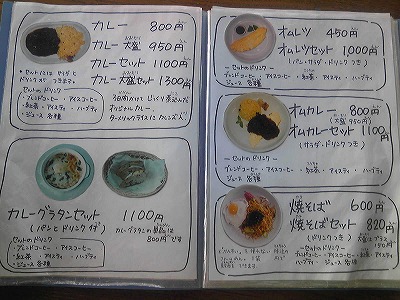 カレー 800円
カレー 大盛 950円
カレーセット 1100円
カレー大盛セット 1300円
・セットにはサラダと
ドリンクがつきます。
セットのドリンク
・ブレンドコーヒー ・アイスコーヒー
・紅茶 ・アイスティ ・ハーブティ
・ジュース 各種
3日間かけ じっくり煮込んだ
オリジナルカレー
ターメリックライスはクルミ入り
カレーグラタンセット 1100円
(パンとドリンク付)
カレーグラタンの単品は
800円です
セットのドリンク
・ブレンドコーヒー ・アイスコーヒー
・紅茶 ・アイスティ ・ハーブティ
・ジュース 各種
オムレツ 450円
オムレツセット 1,000円
(パン・サラダ・ドリンクつき)
－セットのドリンク－
ブレンドコーヒー ・アイスコーヒー
・紅茶 ・アイスティ ・ハーブティ
ジュース 各種
オムカレー 800円
(大盛 950円)
オムカレーセット 1100円
(サラダ・ドリンクつき)
－セットのドリンク－
ブレンドコーヒー ・アイスコーヒー
・紅茶 ・アイスティ ・ハーブティ
ジュース 各種
焼そば 600円
焼そばセット 820円
(ドリンクつき)
大盛は プラス
150円
－セットのドリンク－
ブレンドコーヒー ・アイスコーヒー
・紅茶 ・アイスティ ・ハーブティ
ジュース 各種